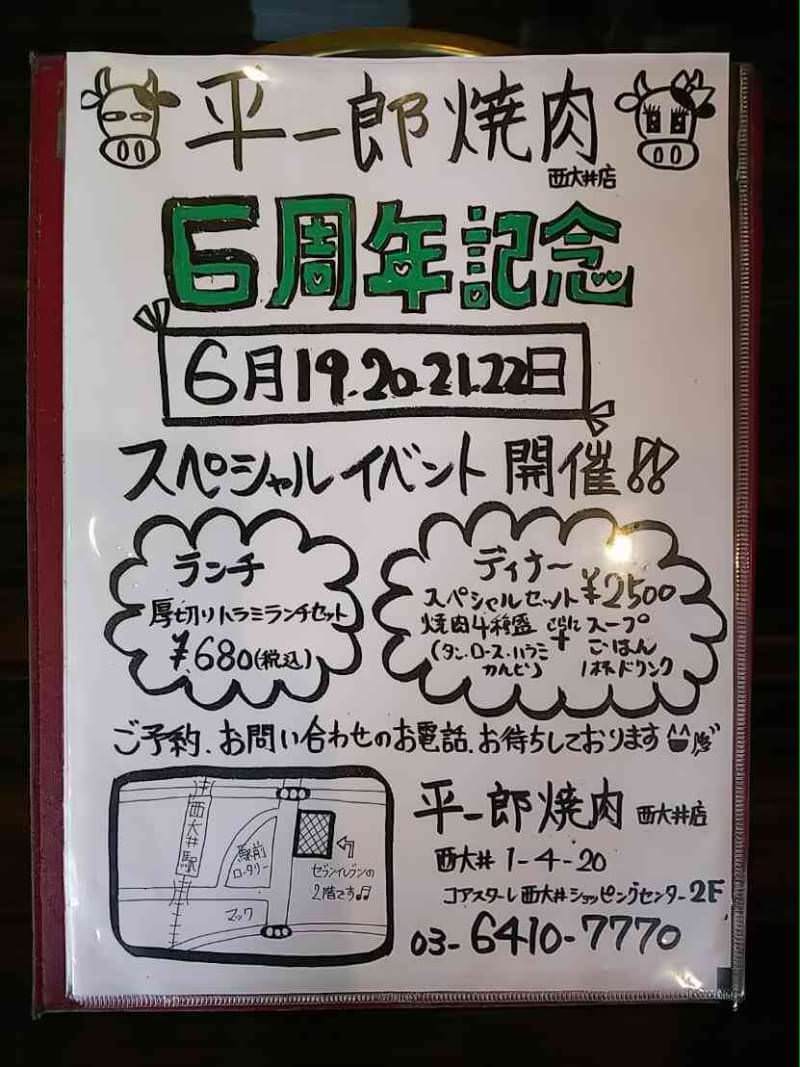 平一郎焼肉
西大井店
6周年記念
6月19.20.21.22日
スペシャルイベント開催!!
ランチ
厚切りハラミランチセット
¥680(税込)
ディナー
スペシャルセット ¥2500
焼肉4種盛
(タン.ロース.ハラミ
カルビ)
さらに
+
スープ
ごはん
1杯ドリンク
ご予約、お問い合わせのお電話、お待ちしております
西大井駅
駅前
ロータリー
マック
セブンイレブンの
2階です♫
平一郎焼肉 西大井店
西大井 1-4-20
コアスターレ西大井ショッピングセンター2F
03-6410-7770